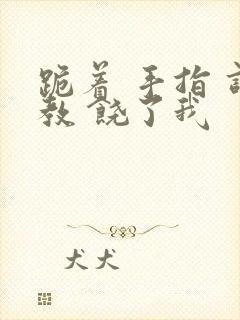 跪着 手指 
教 饶了我
犬犬